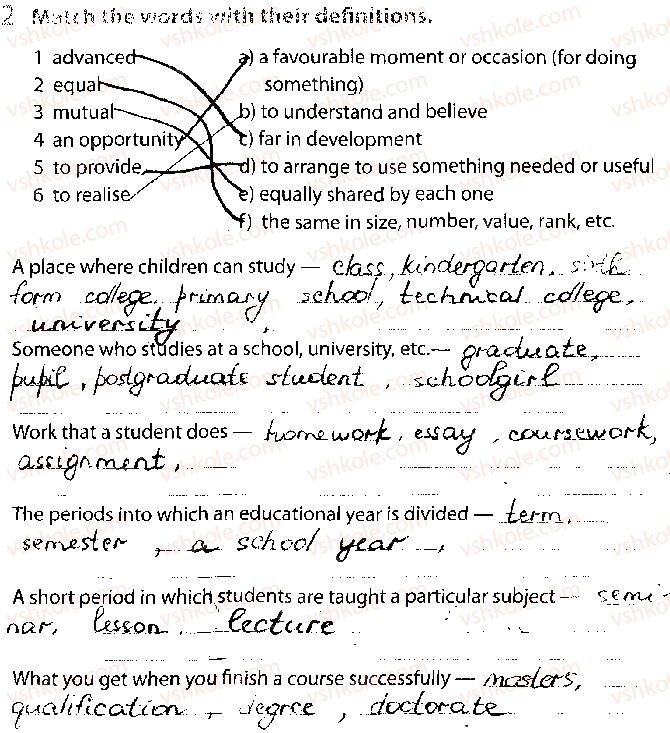 2 Match the words with their definitions.
1 advanced a) a favourable moment or occasion (for doing
2 equal something)
3 mutual b) to understand and believe
4 an opportunity c) far in development
5 to provide d) to arrange to use something needed or useful
6 to realise e) equally shared by each one
f) the same in size, number, value, rank, etc.
A place where children can study — class, kindergarten, sixth
form college, primary school, technical college,
university,
Someone who studies at a school, university, etc.— graduate,
pupil, postgraduate student, schoolgirl
Work that a student does — homework, essay, coursework,
assignment,
The periods into which an educational year is divided — term,
semester, a school year,
A short period in which students are taught a particular subject — semi-
nar, lesson, lecture
What you get when you finish a course successfully — masters,
qualification, degree, doctorate
vshkole.com